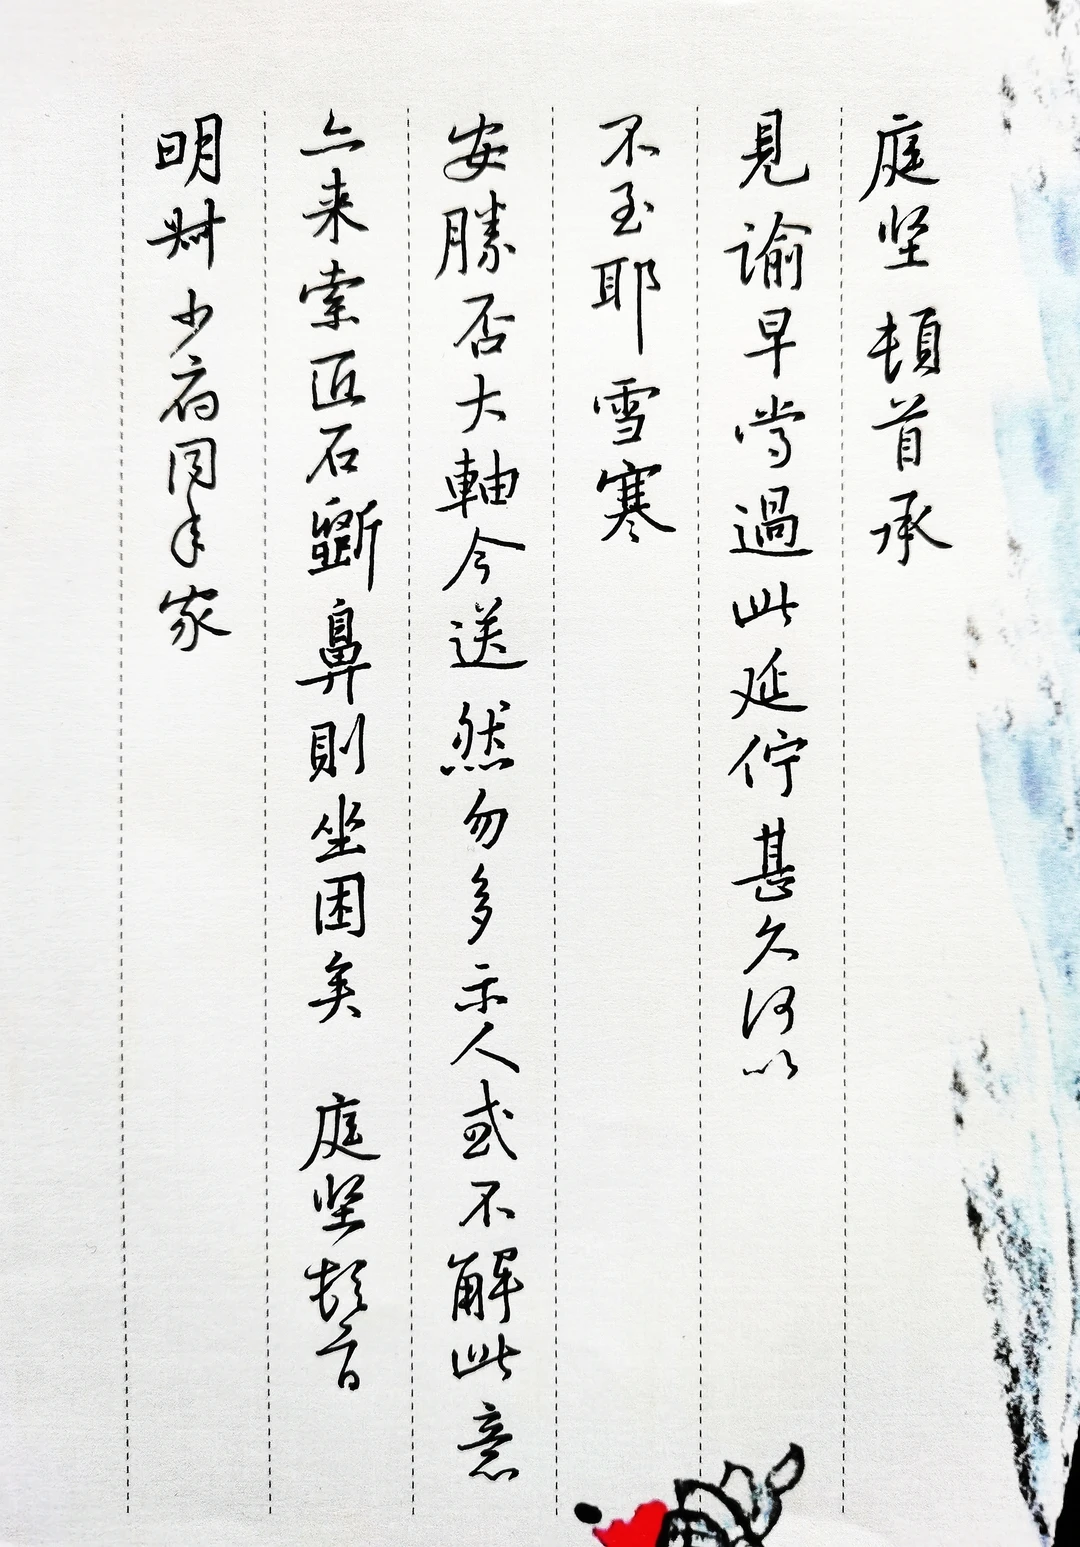 庭坚 頓首承
見諭早嘗過此延佇甚久何以
不至耶 雪寒
安勝否大軸今送然勿多示人或不解此意
亦来索匠石斲鼻則坐困矣 庭坚頓首
明叔少府同年家